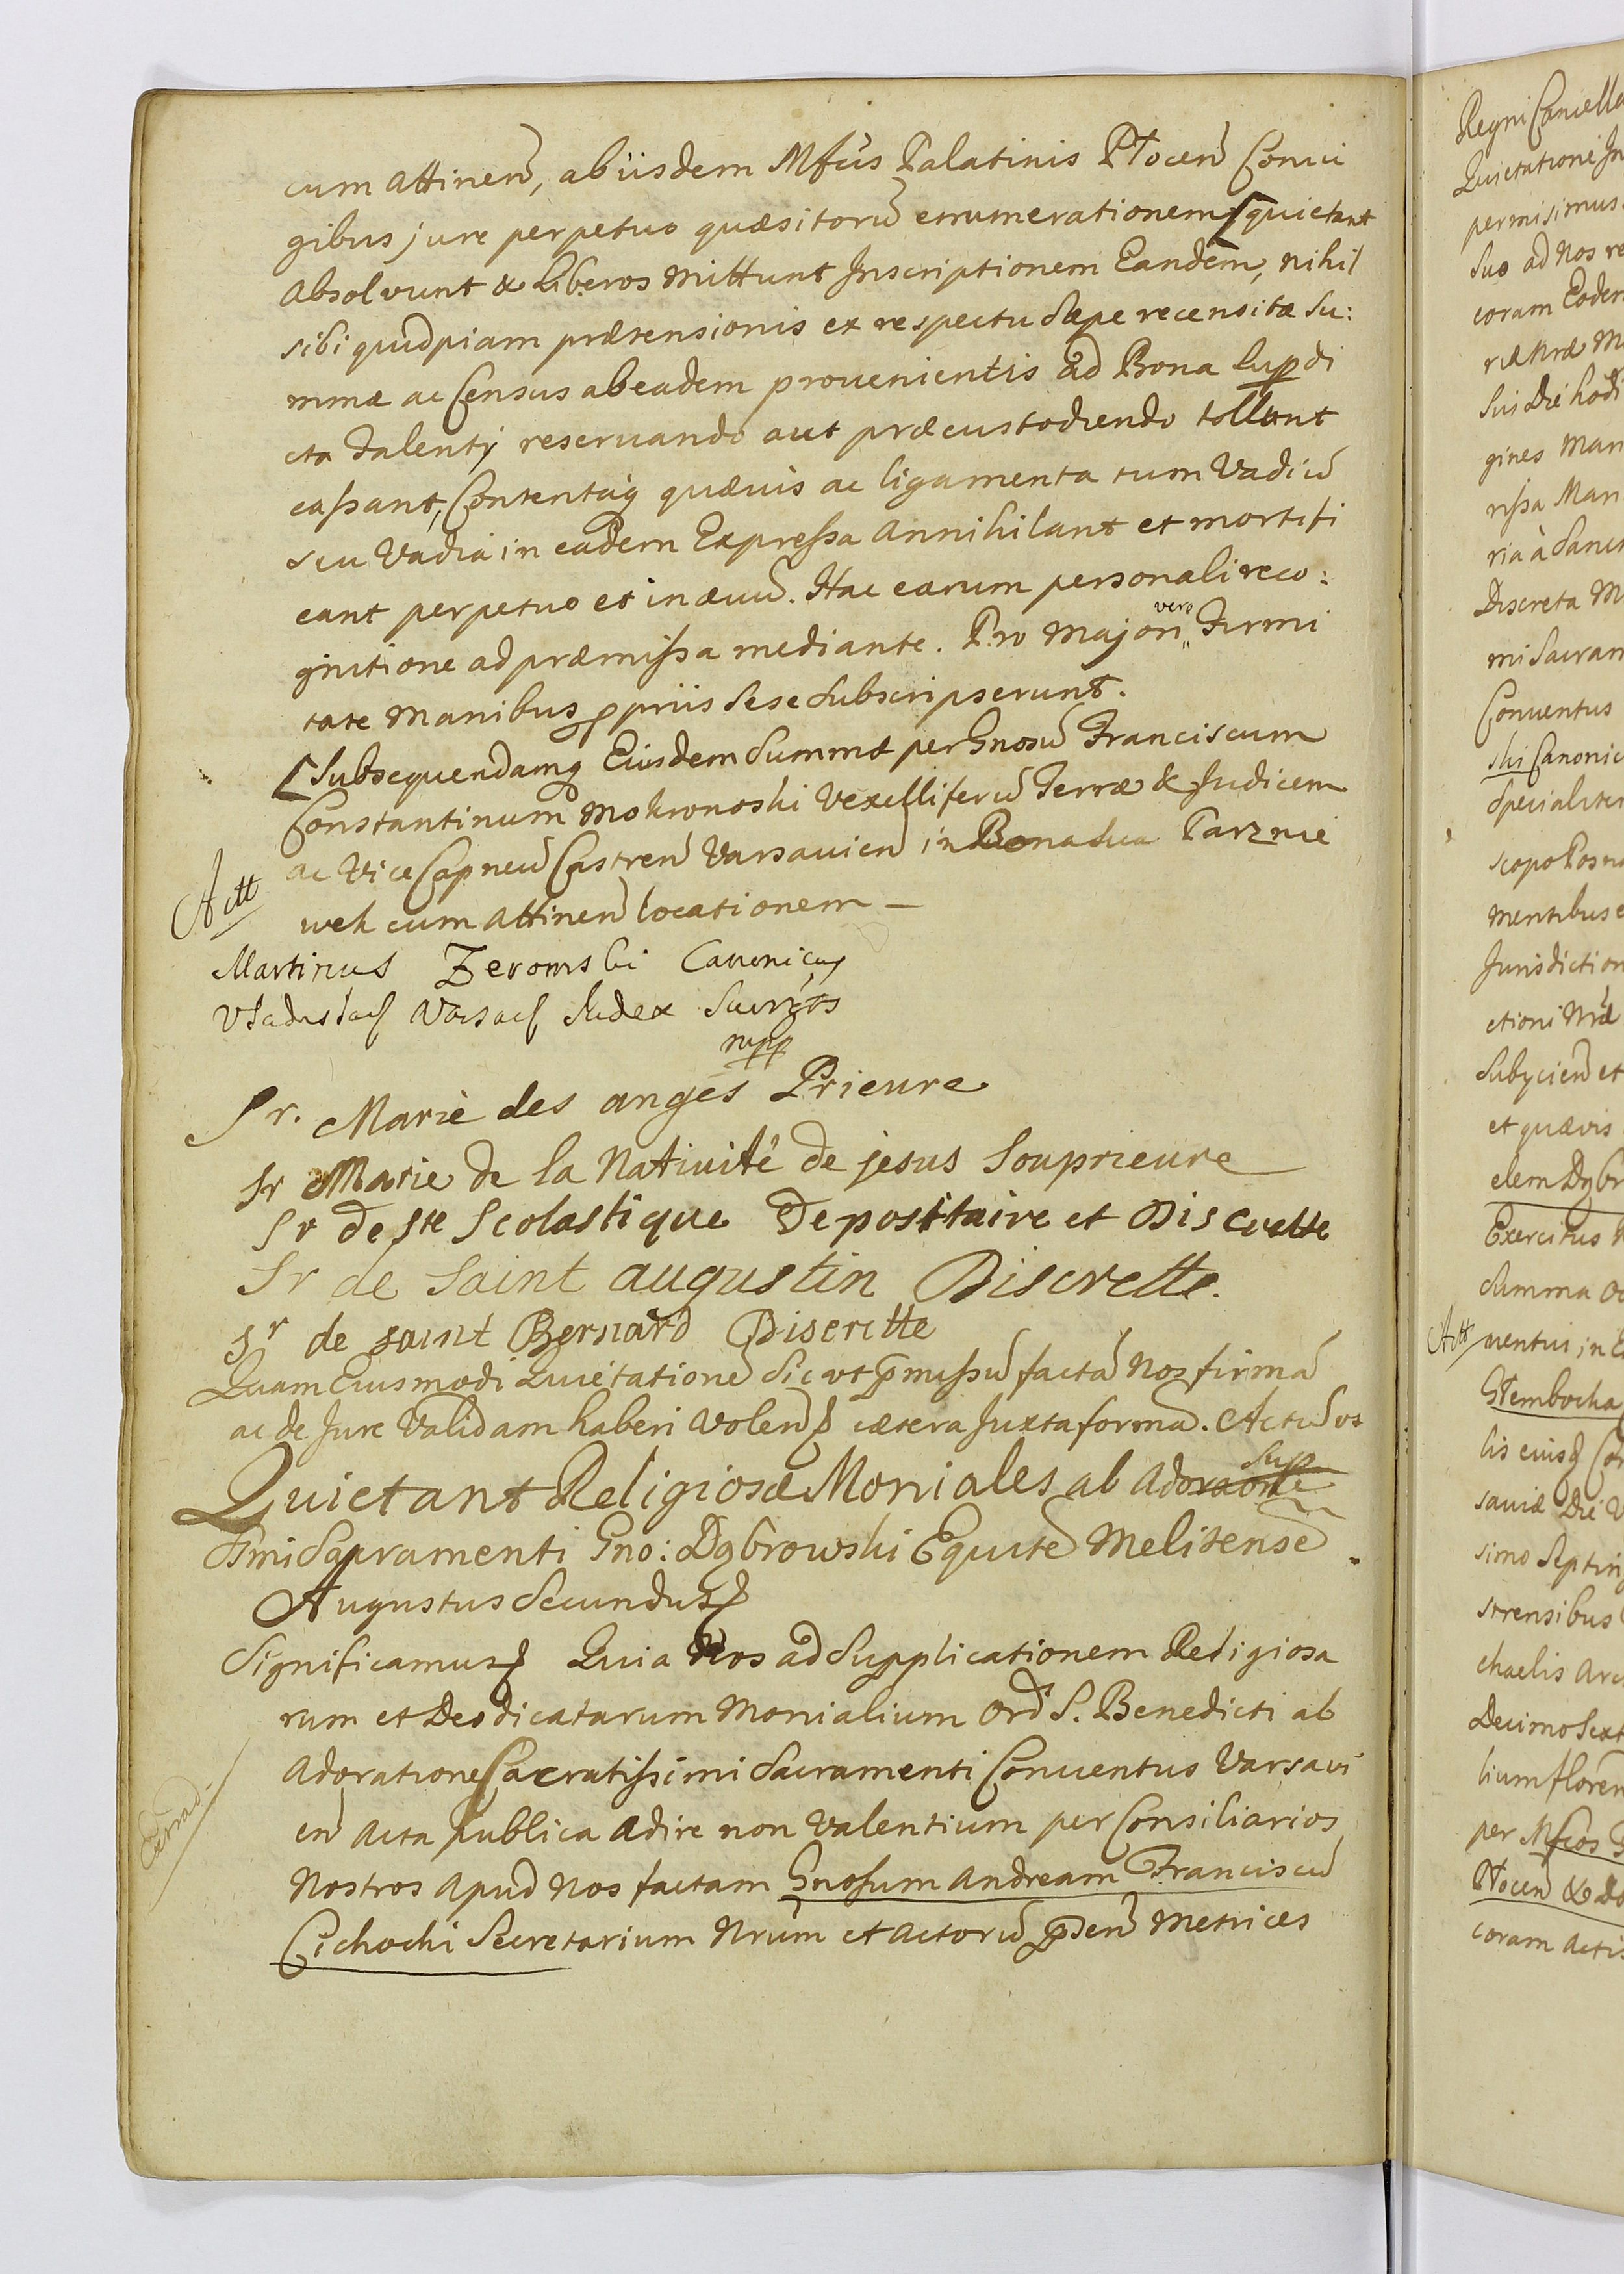 cum attinen, ab iisdem Mfcis Palatinis Płocen Conui
gibus jure perpetuo quæsitorū enumerationem [quietant
absolvunt & liberos mittunt Inscriptionem Eandem, nihil
sibi quidpiam prætensionis ex respectu sæpe recensitæ Su:
mmæ ac Census ab eadem prouenientis ad Bona supdi
cta reseruando aut præcustodiendo tollunt
cassant, Contentaq quævis ac ligamenta tum Vadiū
seu Vadia in eadem Expressa annihilant et mortifi
cant perpetuo et in æuū. Hac earum personali reco:
gnitione ad præmissa mediante. Pro majori vero Firmi
tate manibus ppriis sese subscripserunt.
[Subsequendamq Eiusdem Summæ per Gnosū Franciscum
Constantinum Mokronoski Vexelliferū Terræ & Judicem
ac Vice Capneū Castren Varsauien in Bona sua Parznie
Actt
weh cum attinen locationem —
Martinus Zeromski Canonicus
Vladislaẛ Varsaẛ Judex Surrgts
mpp
Sr. Marie des anges Prieure
Sr Marie de la Nattiuité de jesus Souprieure
Sr de Ste Scolastique Depositaire et Discrette
Sr de Saint augustin Discrette.
Sr de saint Bernard Discrette
Quam Eiusmodi Quietationē sic ut pmissū factā nos firmā
ac de Jure Validam haberi volen caetera Juxta formā. Actū ut
Quietant Religiosæ Moniales ab Adoraone Sup
Ssmi Sacramenti Gno: Dąbrowski Equitē Melitensē
Augustus Secundus
Significamus Quia Nos ad Supplicationem Religiosa
rum et Deodicatarum Monialium Ord S. Benedicti ab
Adoratione Sacratissimi Sacramenti Conuentus Varsaui
en acta publica adire non valentium per Consiliarios
Nostros apud nos factam Gnosum Andream Franciscū
Cichocki Secretarium Nrum et actorū pden metrices
Extrad.
Regni Cancella
Quietatione In
permisimus
suo ad Nos re
coram Eodem
riæ Nræ M
suis Die hodi
gines Mari
rissa Mari
ria à Sanct
Discreta M
mi Sacram
Conuentus
ski Canonic
specialiter
scopo Posna
mentibus e
Jurisdiction
ctioni Nræ
Subycien et
et quævis
elem Dąbr
Exercitus
Summa
Actt
uentui in
Stembocka
lis eiusq
sauiæ Die V
simo Septin
strensibus
chaelis Arc
Decimo Sext
lium floren
per Mfcos
Płocen &
coram Actis